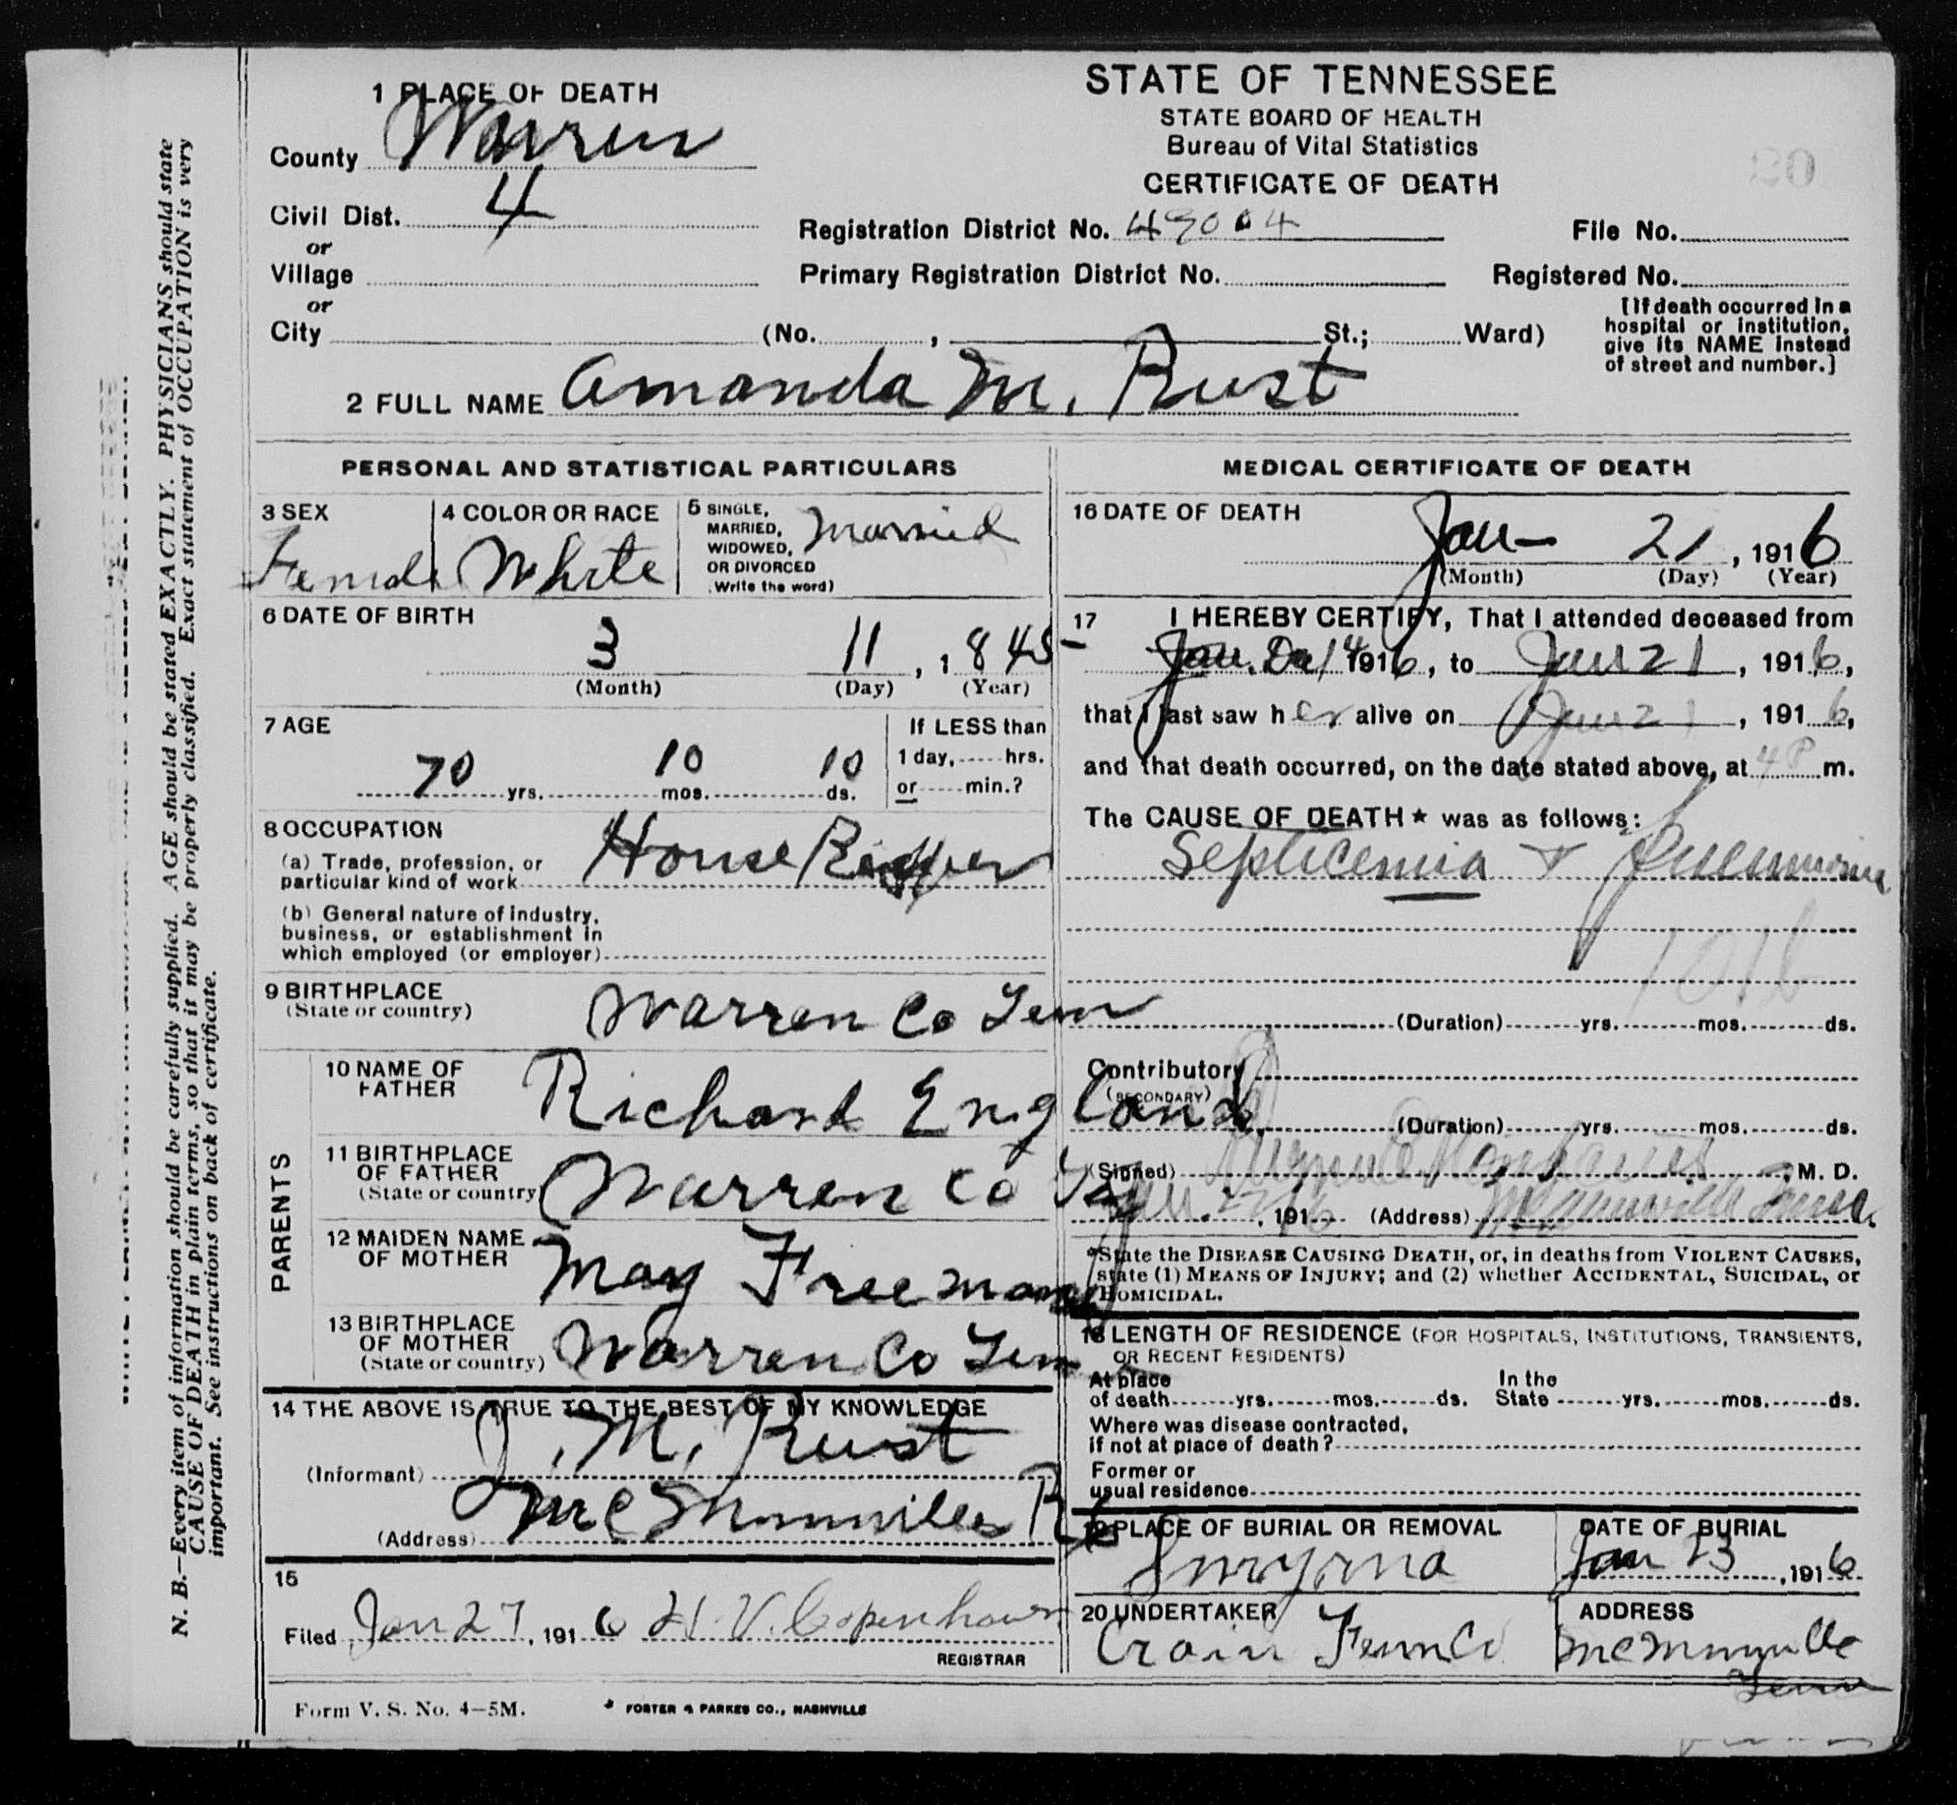 1 PLACE OF DEATH
County Warren
Civil Dist. 4
or
Village
or
City (No. , St.; Ward)
STATE OF TENNESSEE
STATE BOARD OF HEALTH
Bureau of Vital Statistics
CERTIFICATE OF DEATH
Registration District No. 49004
File No.
Primary Registration District No.
Registered No.
[If death occurred in a
hospital or institution,
give its NAME instead
of street and number.]
2 FULL NAME Amanda M. Rust
PERSONAL AND STATISTICAL PARTICULARS
3 SEX
Female
4 COLOR OR RACE
White
5 SINGLE,
MARRIED,
WIDOWED,
OR DIVORCED
(Write the word)
Married
6 DATE OF BIRTH
3 11, 1845
(Month) (Day) (Year)
7 AGE
70 yrs. 10 mos. 10 ds.
If LESS than
1 day, hrs.
or min.?
8 OCCUPATION
(a) Trade, profession, or
particular kind of work House
(b) General nature of industry,
business, or establishment in
which employed (or employer)
9 BIRTHPLACE
(State or country)
Warren Co Tenn
PARENTS
10 NAME OF
FATHER
Richard England
11 BIRTHPLACE
OF FATHER
(State or country)
Warren Co
12 MAIDEN NAME
OF MOTHER
May Freeman
13 BIRTHPLACE
OF MOTHER
(State or country)
Warren Co Tenn
14 THE ABOVE IS TRUE TO THE BEST OF MY KNOWLEDGE
(Informant) J. M. Rust
(Address) McMinnville R
15
Filed Jan 27, 1916 H. V. Copenhaver
REGISTRAR
Form V. S. No. 4—5M.
FOSTER & PARKES CO., NASHVILLE
MEDICAL CERTIFICATE OF DEATH
16 DATE OF DEATH
Jan 21, 1916
(Month) (Day) (Year)
17 I HEREBY CERTIFY, That I attended deceased from
Jan. 1916, to Jan 21, 1916,
that I last saw her alive on Jan 21, 1916,
and that death occurred, on the date stated above, at 4 P m.
The CAUSE OF DEATH* was as follows:
Septicemia + Pneumonia
(Duration) yrs. mos. ds.
Contributory
(SECONDARY)
(Duration) yrs. mos. ds.
(Signed) , M. D.
, 191 (Address) McMinnville Tenn.
*State the DISEASE CAUSING DEATH, or, in deaths from VIOLENT CAUSES,
state (1) MEANS OF INJURY; and (2) whether ACCIDENTAL, SUICIDAL, or
HOMICIDAL.
18 LENGTH OF RESIDENCE (FOR HOSPITALS, INSTITUTIONS, TRANSIENTS,
OR RECENT RESIDENTS)
At place
of death yrs. mos. ds.
In the
State yrs. mos. ds.
Where was disease contracted,
if not at place of death?
Former or
usual residence
19 PLACE OF BURIAL OR REMOVAL
Smyrna
DATE OF BURIAL
Jan 23, 1916
20 UNDERTAKER
Crain
ADDRESS
McMinnville
Tenn
N. B.—Every item of information should be carefully supplied. AGE should be stated EXACTLY. PHYSICIANS should state
CAUSE OF DEATH in plain terms, so that it may be properly classified. Exact statement of OCCUPATION is very
important. See instructions on back of certificate.